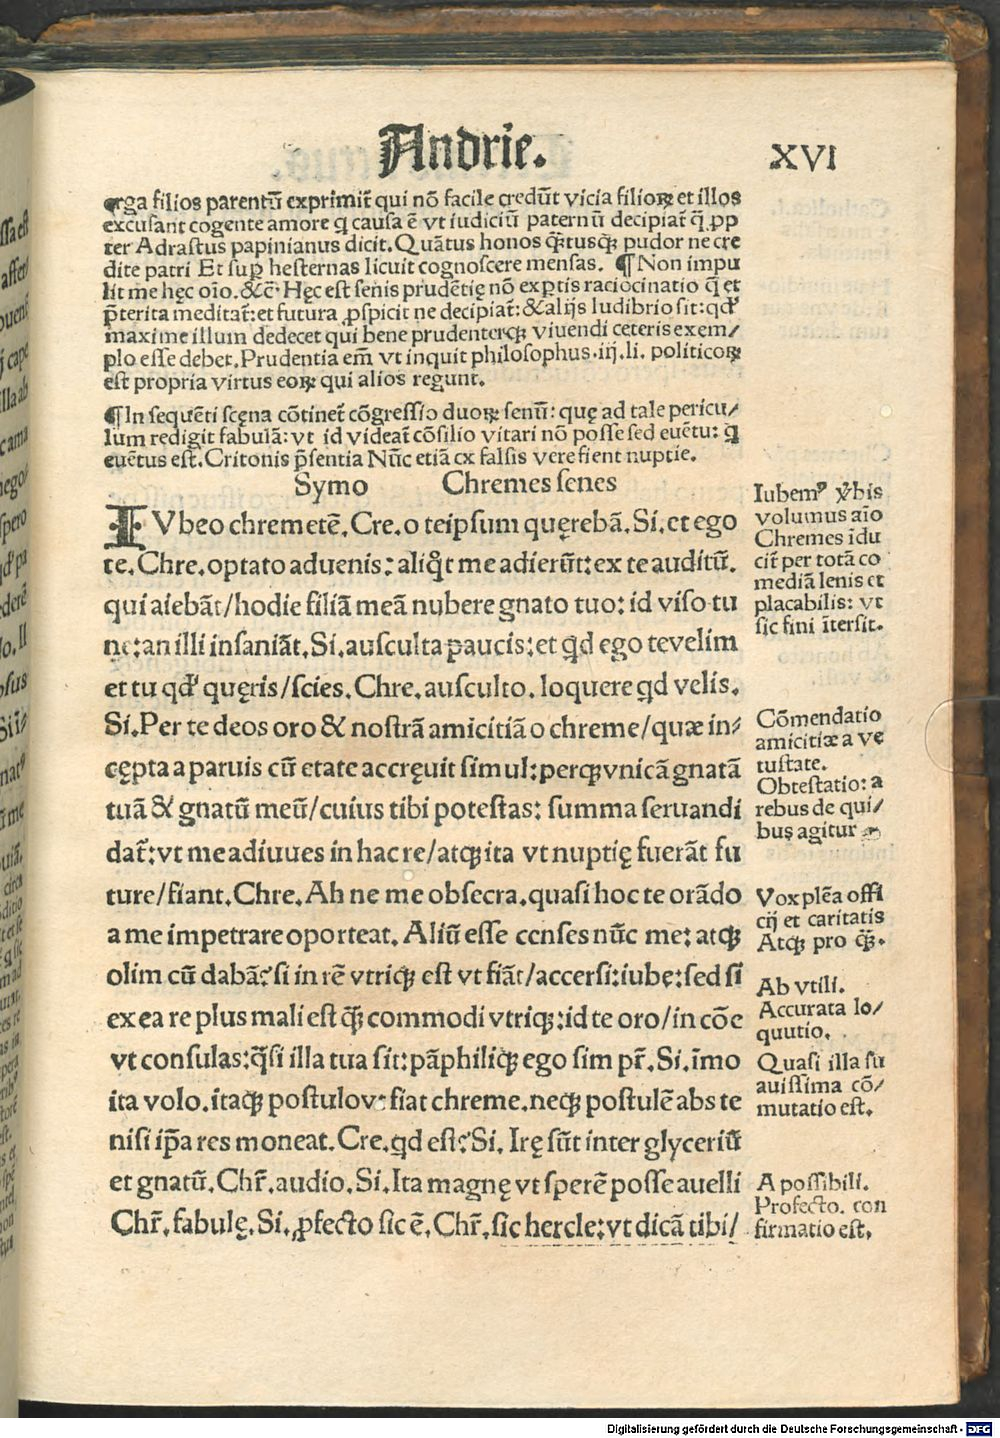 Andrie.
XVI
erga filios parentū exprimit̄ qui nō facile credūt vicia filioꝝ et illos
excusant cogente amore q causa ē vt iudiciū paternū decipiat̄ q̄ ꝓp
ter Adrastus papinianus dicit. Quātus honos qͣ̄tusqꝫ pudor ne cre
dite patri Et suꝑ hesternas licuit cognoscere mensas. ¶ Non impu
lit me hęc oīo. &c̄· Hęc est senis prudētię nō exꝑtis raciocinatio q̄ et
p̄terita meditat̄: et futura ꝓspicit ne decipiat̄: & alijs ludibrio sit: qd'
maxime illum dedecet qui bene prudenterqꝫ viuendi ceteris exem/
plo esse debet. Prudentia em̄ vt inquit philosophus .iij. li. politicoꝝ
est propria virtus eoꝝ qui alios regunt.
¶ In sequēti scęna cōtinet̄ cōgressio duoꝝ senū: quę ad tale pericu/
lum redigit fabulā: vt id videat̄ cōsilio vitari nō posse sed euētu: q̄
euētus est. Critonis p̄sentia Nūc etiā ex falsis vere fient nuptie.
Symo Chremes senes
IVbeo chremetē. Cre. o teipsum quęrebā. Si. et ego
te. Chre. optato aduenis: aliq̄t me adierūt: ex te auditū.
qui aiebāt/hodie filiā meā nubere gnato tuo: id viso tu
ne: an illi insaniāt. Si. ausculta paucis: et qd ego te velim
et tu qd' quęris/scies. Chre. ausculto. loquere qd velis.
Si. Per te deos oro & nostrā amicitiā o chreme/quæ in/
cępta a paruis cū etate accręuit simul: perqꝫ vnicā gnatā
tuā & gnatū meū/cuius tibi potestas: summa seruandi
dat̄: vt me adiuues in hac re/atqꝫ ita vt nuptię fuerāt fu
ture/fiant. Chre. Ah ne me obsecra. quasi hoc te orādo
a me impetrare oporteat. Aliū esse censes nūc me: atqꝫ
olim cū dabā? si in rē vtriqꝫ est vt fiāt/accersi: iubę: sed si
ex ea re plus mali est qꝫ̄ commodi vtriqꝫ: id te oro/in cōe
vt consulas: q̄si illa tua sit: pāphiliqꝫ ego sim pr̄. Si. īmo
ita volo. itaqꝫ postulo v: fiat chreme. neqꝫ postulē abs te
nisi ip̄a res moneat. Cre. qd est? Si. Irę sūt inter glyceriū
et gnatū. Chr̄. audio. Si. Ita magnę vt sperē posse auelli
Chr̄. fabulę. Si. ꝓfecto sic ē. Chr̄. sic hercle: vt dicā tibi/
Iubemꝰ ꝟbis
volumus aīo
Chremes īdu
cit̄ per totā co
mediā lenis et
placabilis: vt
sic fini ītersit.
Cōmendatio
amicitiæ a ve
tustate.
Obtestatio: a
rebus de qui/
bus agitur
Vox plēa offi
cij et caritatis
Atqꝫ pro qꝫ̄.
Ab vtili.
Accurata lo/
quutio.
Quasi illa su
auissima cō/
mutatio est.
A possibili.
Profecto. con
firmatio est.
Digitalisierung gefördert durch die Deutsche Forschungsgemeinschaft - DFG